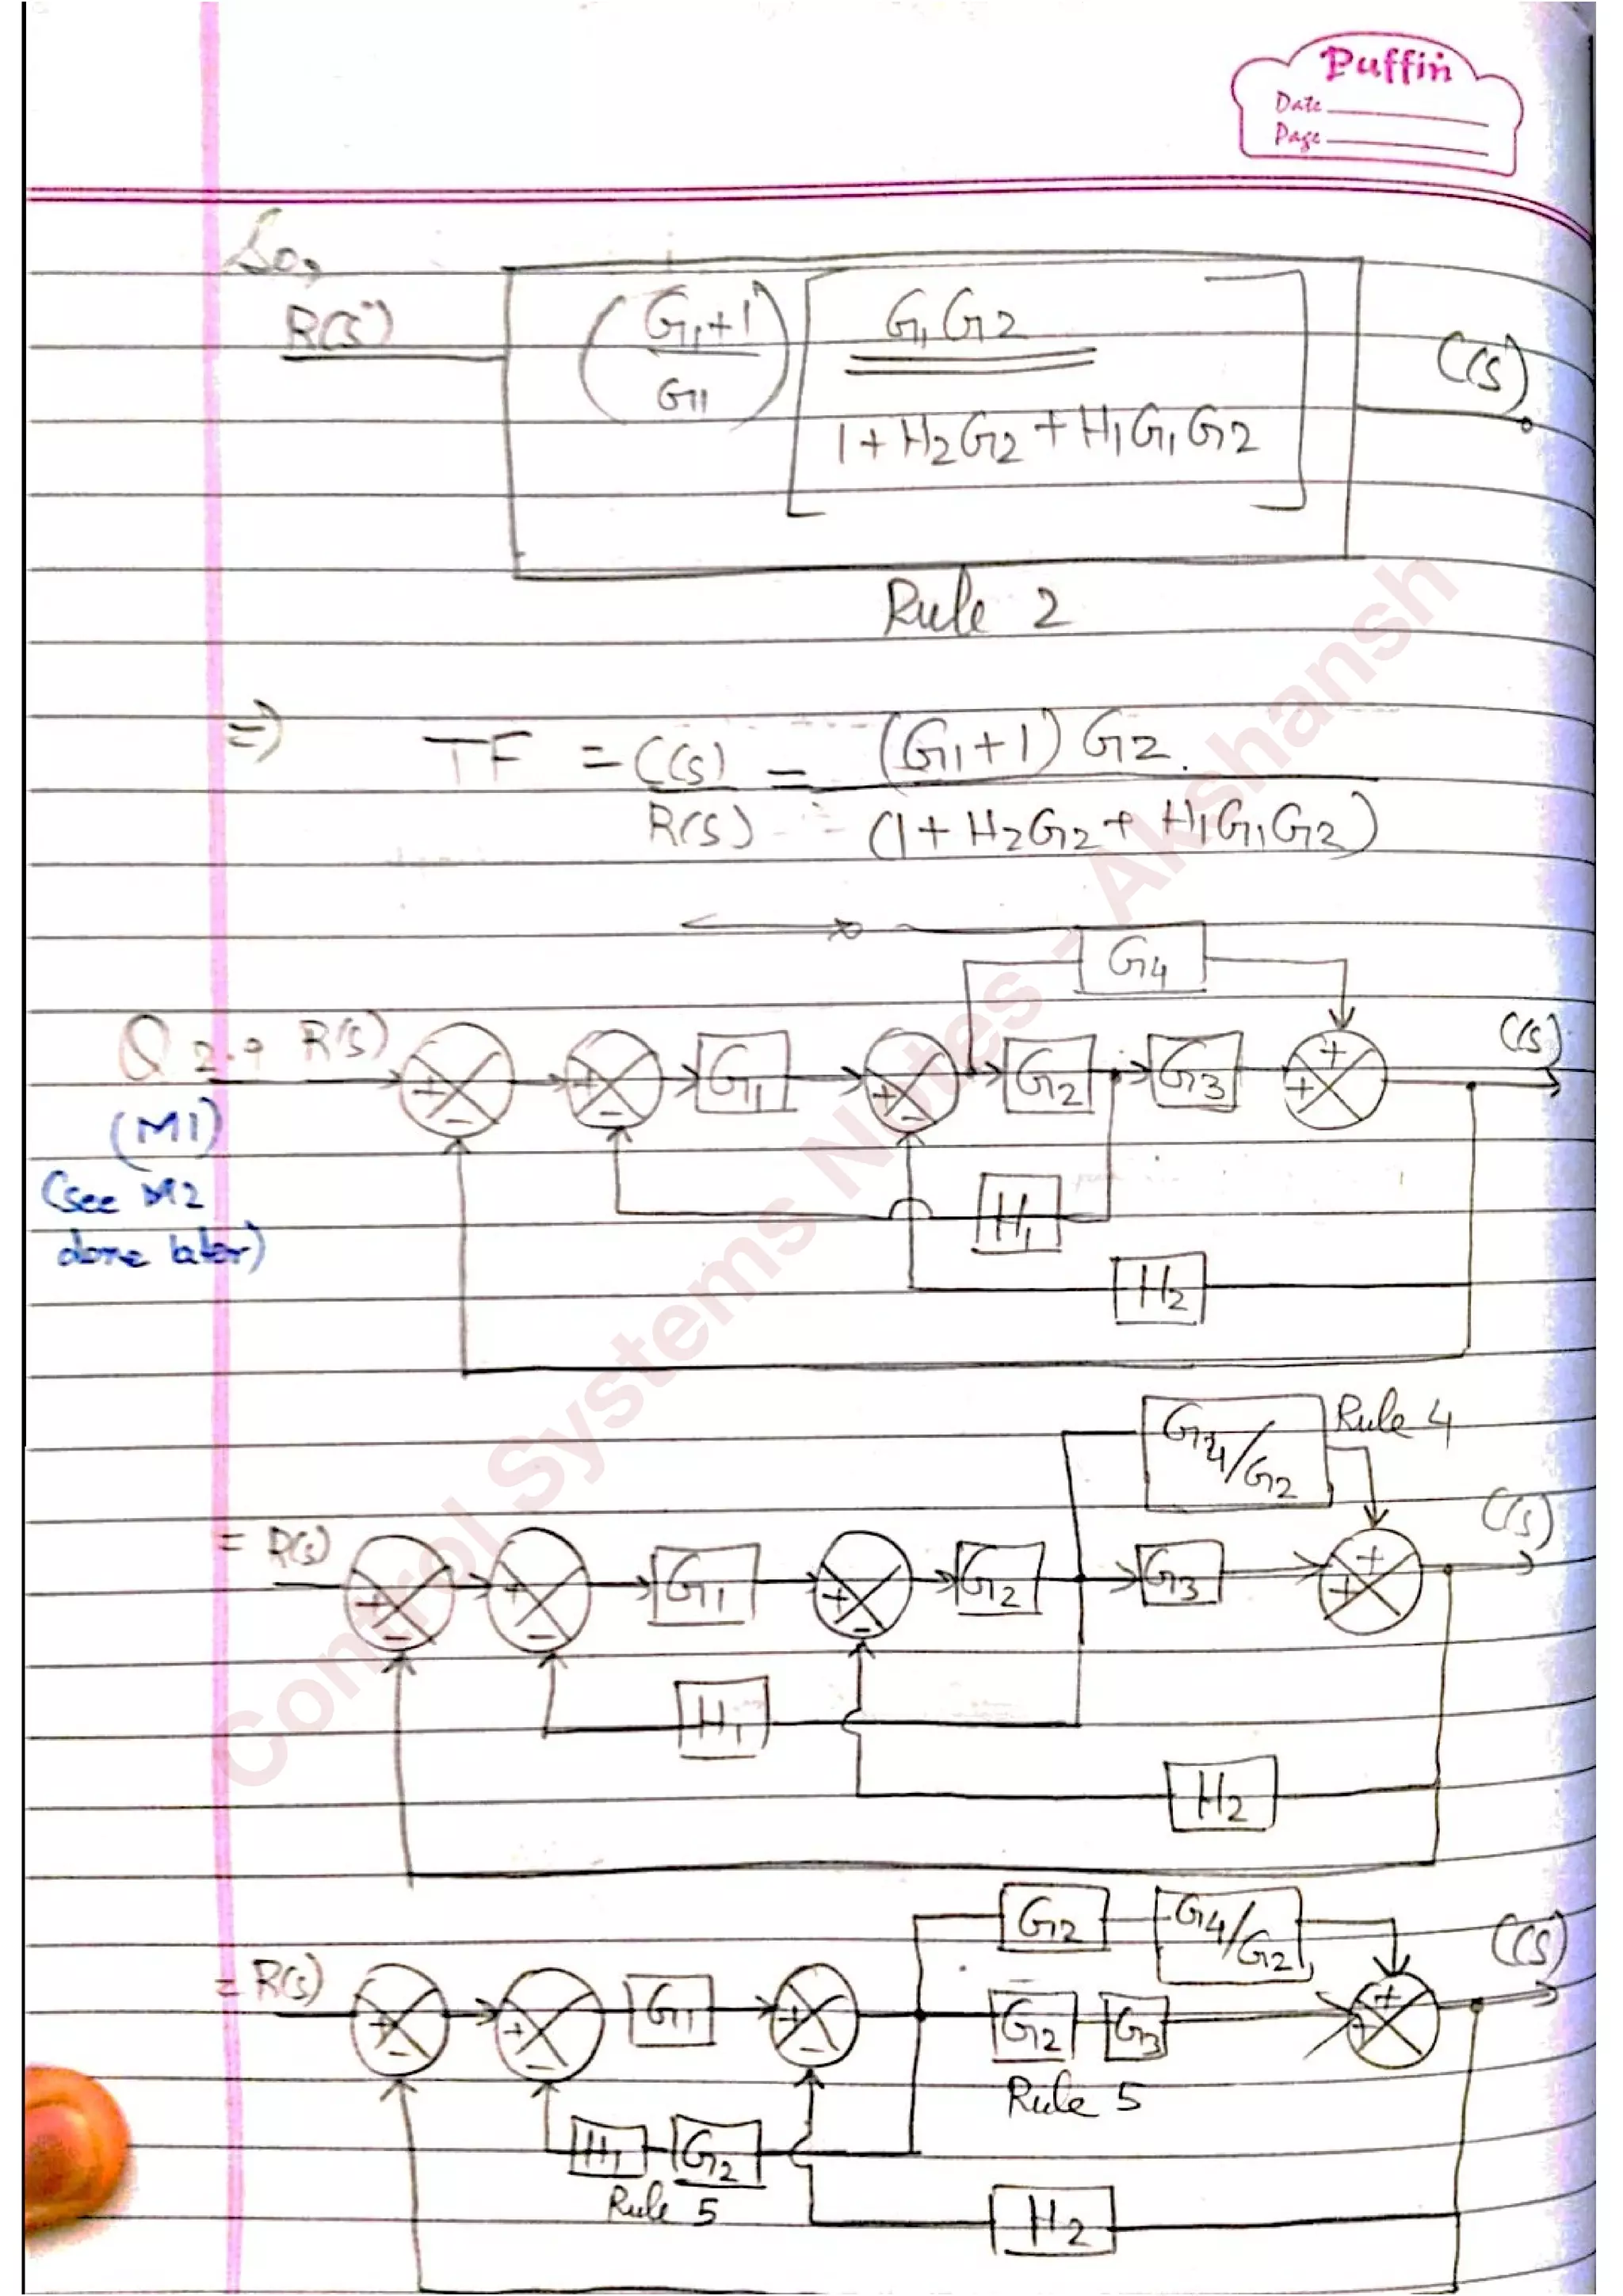 Puffin
Date
Page
So,
R(s) (G1+1 / G1) [ G1G2 / 1+H2G2+H1G1G2 ] C(s)
Rule 2
⇒ TF = C(s)/R(s) = (G1+1) G2. / (1+H2G2+H1G1G2)
G4
Q2.→ R(s) + - + - G1 + - G2 G3 + + C(s)
(M1)
(see M2
done later)
H1
H2
G4/G2 Rule 4
= R(s) + - + - G1 + - G2 G3 + + C(s)
H1
H2
G2 G4/G2
= R(s) + - + - G1 + - G2 G3 + + C(s)
Rule 5
H1 G2
Rule 5
H2
Control Systems Notes - Akshansh